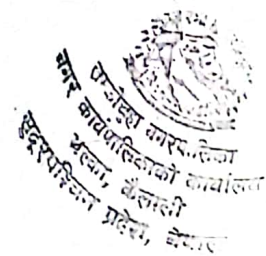 नगरपालिका
नगर कार्यपालिकाको कार्यालय
कैलाली
सुदूरपश्चिम प्रदेश, नेपाल